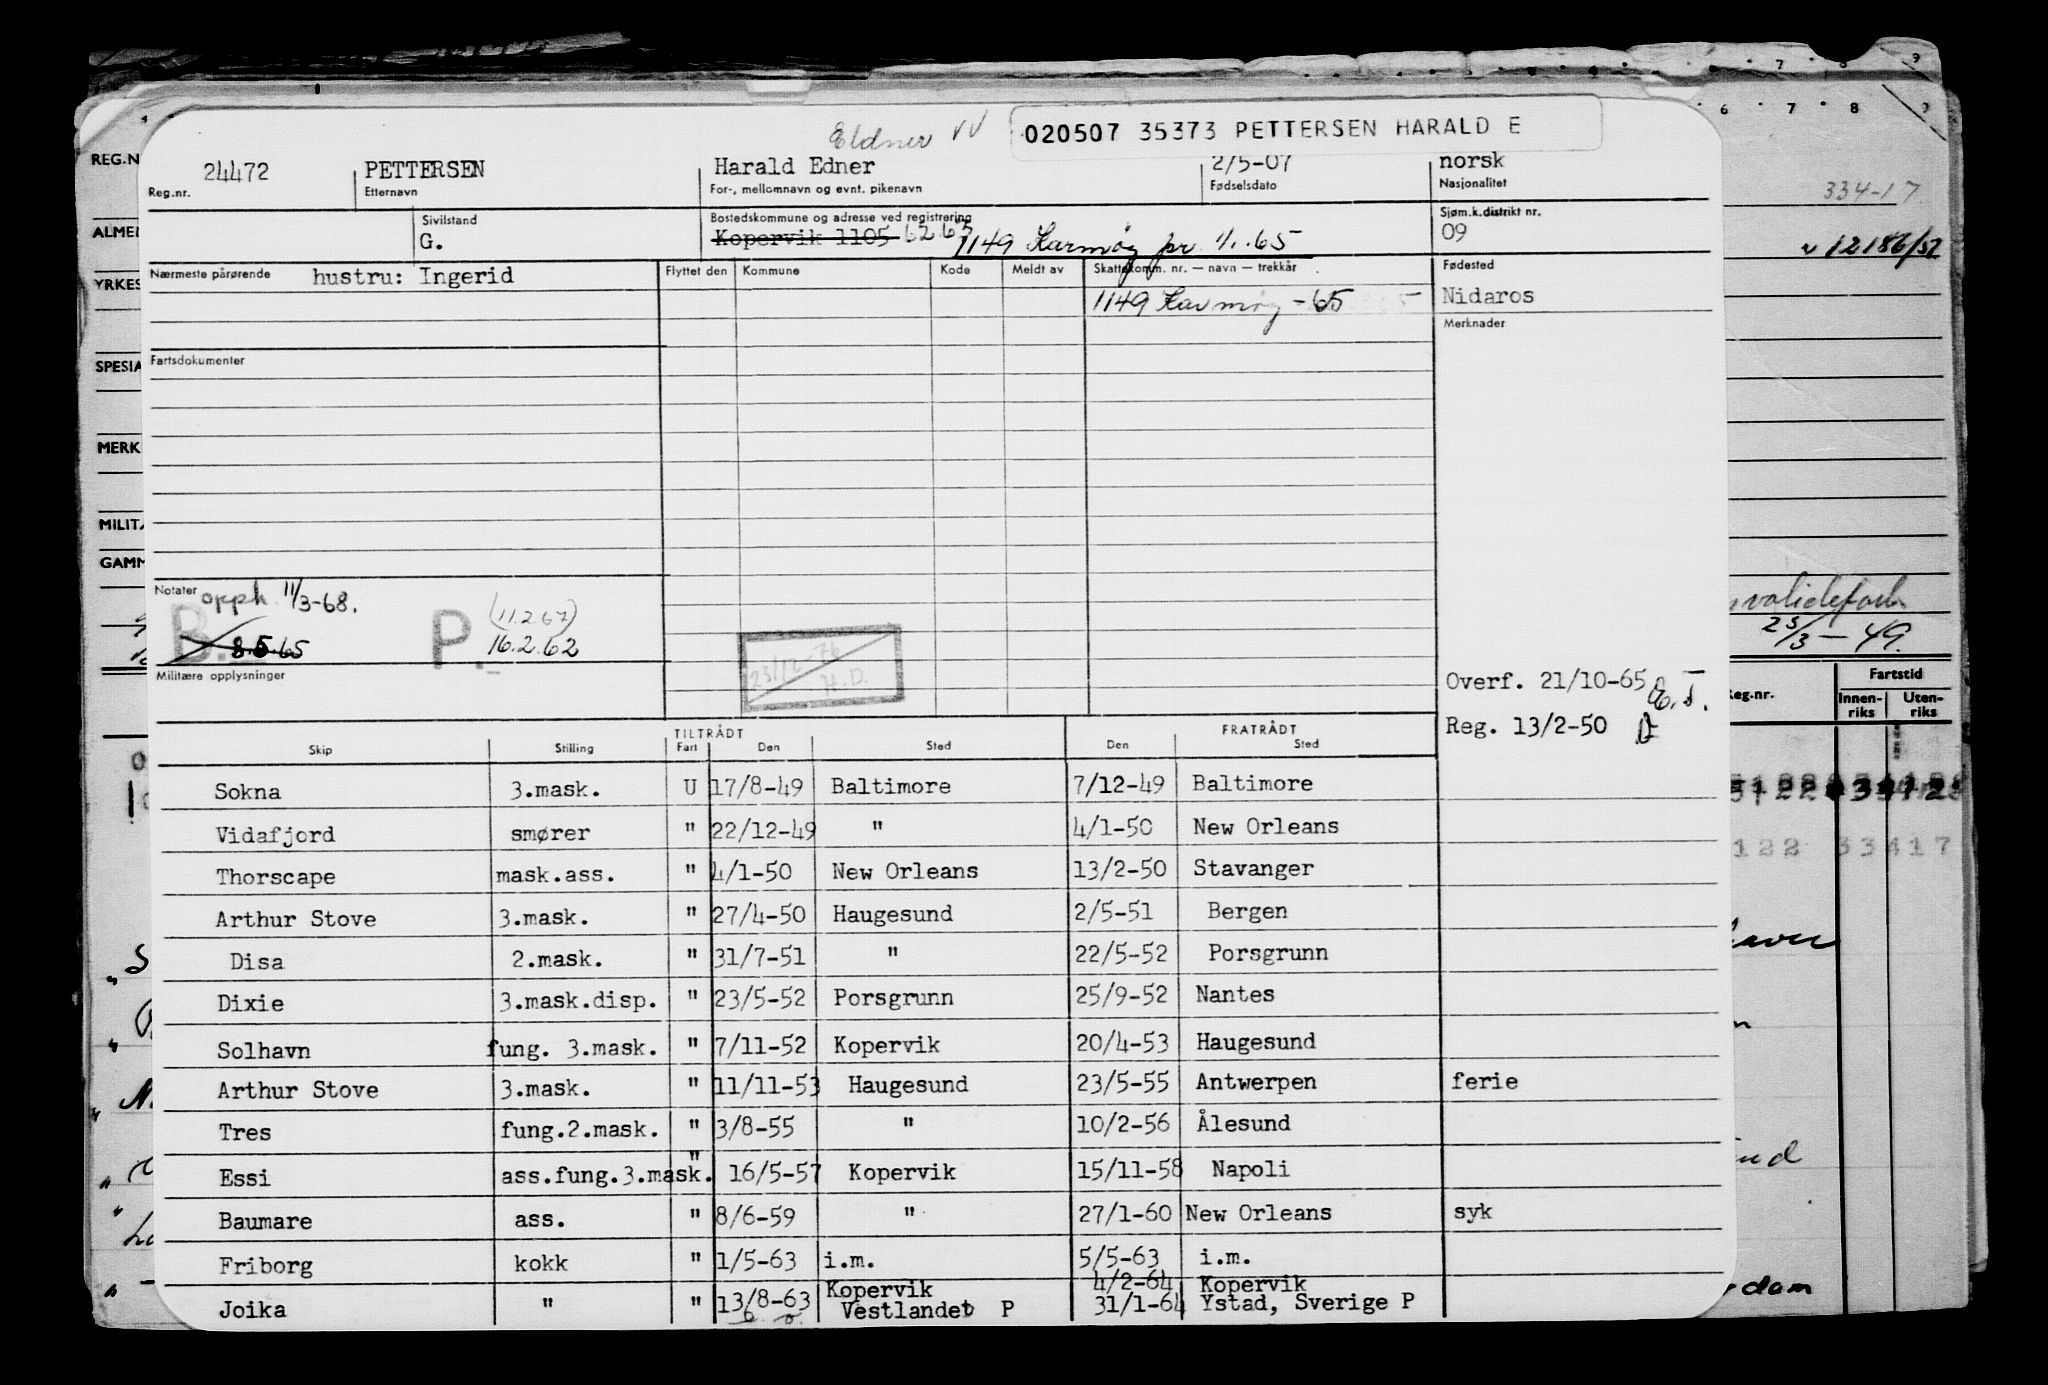 Eldner VV
020507 35373 PETTERSEN HARALD E
24472 PETTERSEN Harald Edner 2/5-07 norsk
Reg.nr. Etternavn For-, mellomnavn og evnt. pikenavn Fødselsdato Nasjonalitet
334-17
REG.N
Sivilstand Bostedskommune og adresse ved registrering Sjøm.k.distrikt nr.
ALMEI G. Kopervik 1105 62.65 1149 Karmøy pr. 1/1.65 09 12186/52
Nærmeste pårørende hustru: Ingerid Flyttet den Kommune Kode Meldt av Skattekomm. nr. — navn — trekkår Fødested
YRKES 1149 Karmøy -65 Nidaros
Merknader
SPESIA Fartsdokumenter
MERK
MILITÆ
GAMM
Notater opph. 11/3-68.
B. 8.5.65 P. (11.2.67)
16.2.62
23/12-76
H.D.
25/3-49.
Militære opplysninger
Overf. 21/10-65 E.T.
Reg. 13/2-50
Reg.nr. Fartstid
Innen-riks Uten-riks
TILTRÅDT FRATRÅDT
Skip Stilling Fart Den Sted Den Sted
Sokna 3.mask. U 17/8-49 Baltimore 7/12-49 Baltimore
Vidafjord smører " 22/12-49 " 4/1-50 New Orleans
122 33417
Thorscape mask.ass. " 4/1-50 New Orleans 13/2-50 Stavanger
Arthur Stove 3.mask. " 27/4-50 Haugesund 2/5-51 Bergen
Disa 2.mask. " 31/7-51 " 22/5-52 Porsgrunn
Dixie 3.mask.disp. " 23/5-52 Porsgrunn 25/9-52 Nantes
Solhavn fung. 3.mask. " 7/11-52 Kopervik 20/4-53 Haugesund
Arthur Stove 3.mask. " 11/11-53 Haugesund 23/5-55 Antwerpen ferie
Tres fung.2.mask. " 3/8-55 " 10/2-56 Ålesund
Essi ass.fung.3.mask. " 16/5-57 Kopervik 15/11-58 Napoli
Baumare ass. " 8/6-59 " 27/1-60 New Orleans syk
Friborg kokk " 1/5-63 i.m. 5/5-63 i.m.
Joika " " 13/8-63 Kopervik 4/2-64 Kopervik
6 Vestlandet P 31/1-64 Ystad, Sverige P